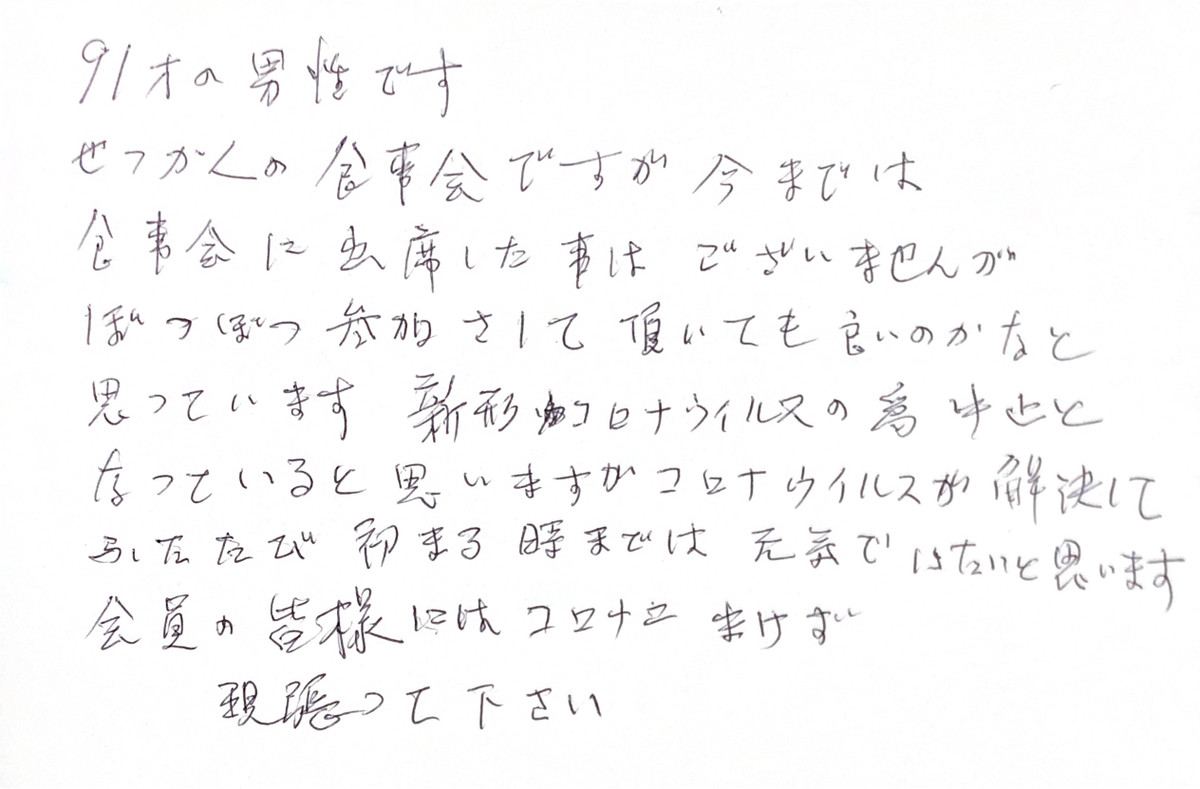 91才の男性です
せっかくの食事会ですが今までは
食事会に出席した事はございませんが
ぼつぼつ参加さして頂いても良いのかなと
思っています 新形コロナウイルスの為中止と
なっていると思いますがコロナウイルスが解決して
ふたたび初まる時までは元気で いたいと思います
会員の皆様にはコロナに まけず
頑張って下さい